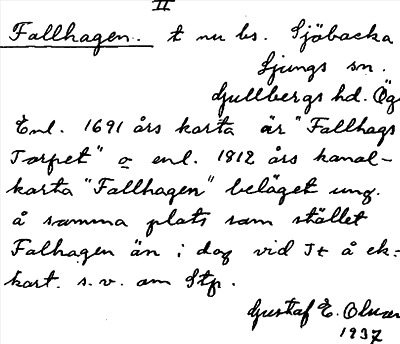 II
Fallhagen. t nu bs. Sjöbacka
Ljungs sn.
Gullbergs hd. Ög
Enl. 1691 års karta är "Fallhags
Torpet" o enl. 1812 års kanal-
karta "Fallhagen" beläget ung.
å samma plats som stället
Falhagen än i dag vid It å ek.
kart. s.v. om Stp.
Gustaf E. Olsson
1937